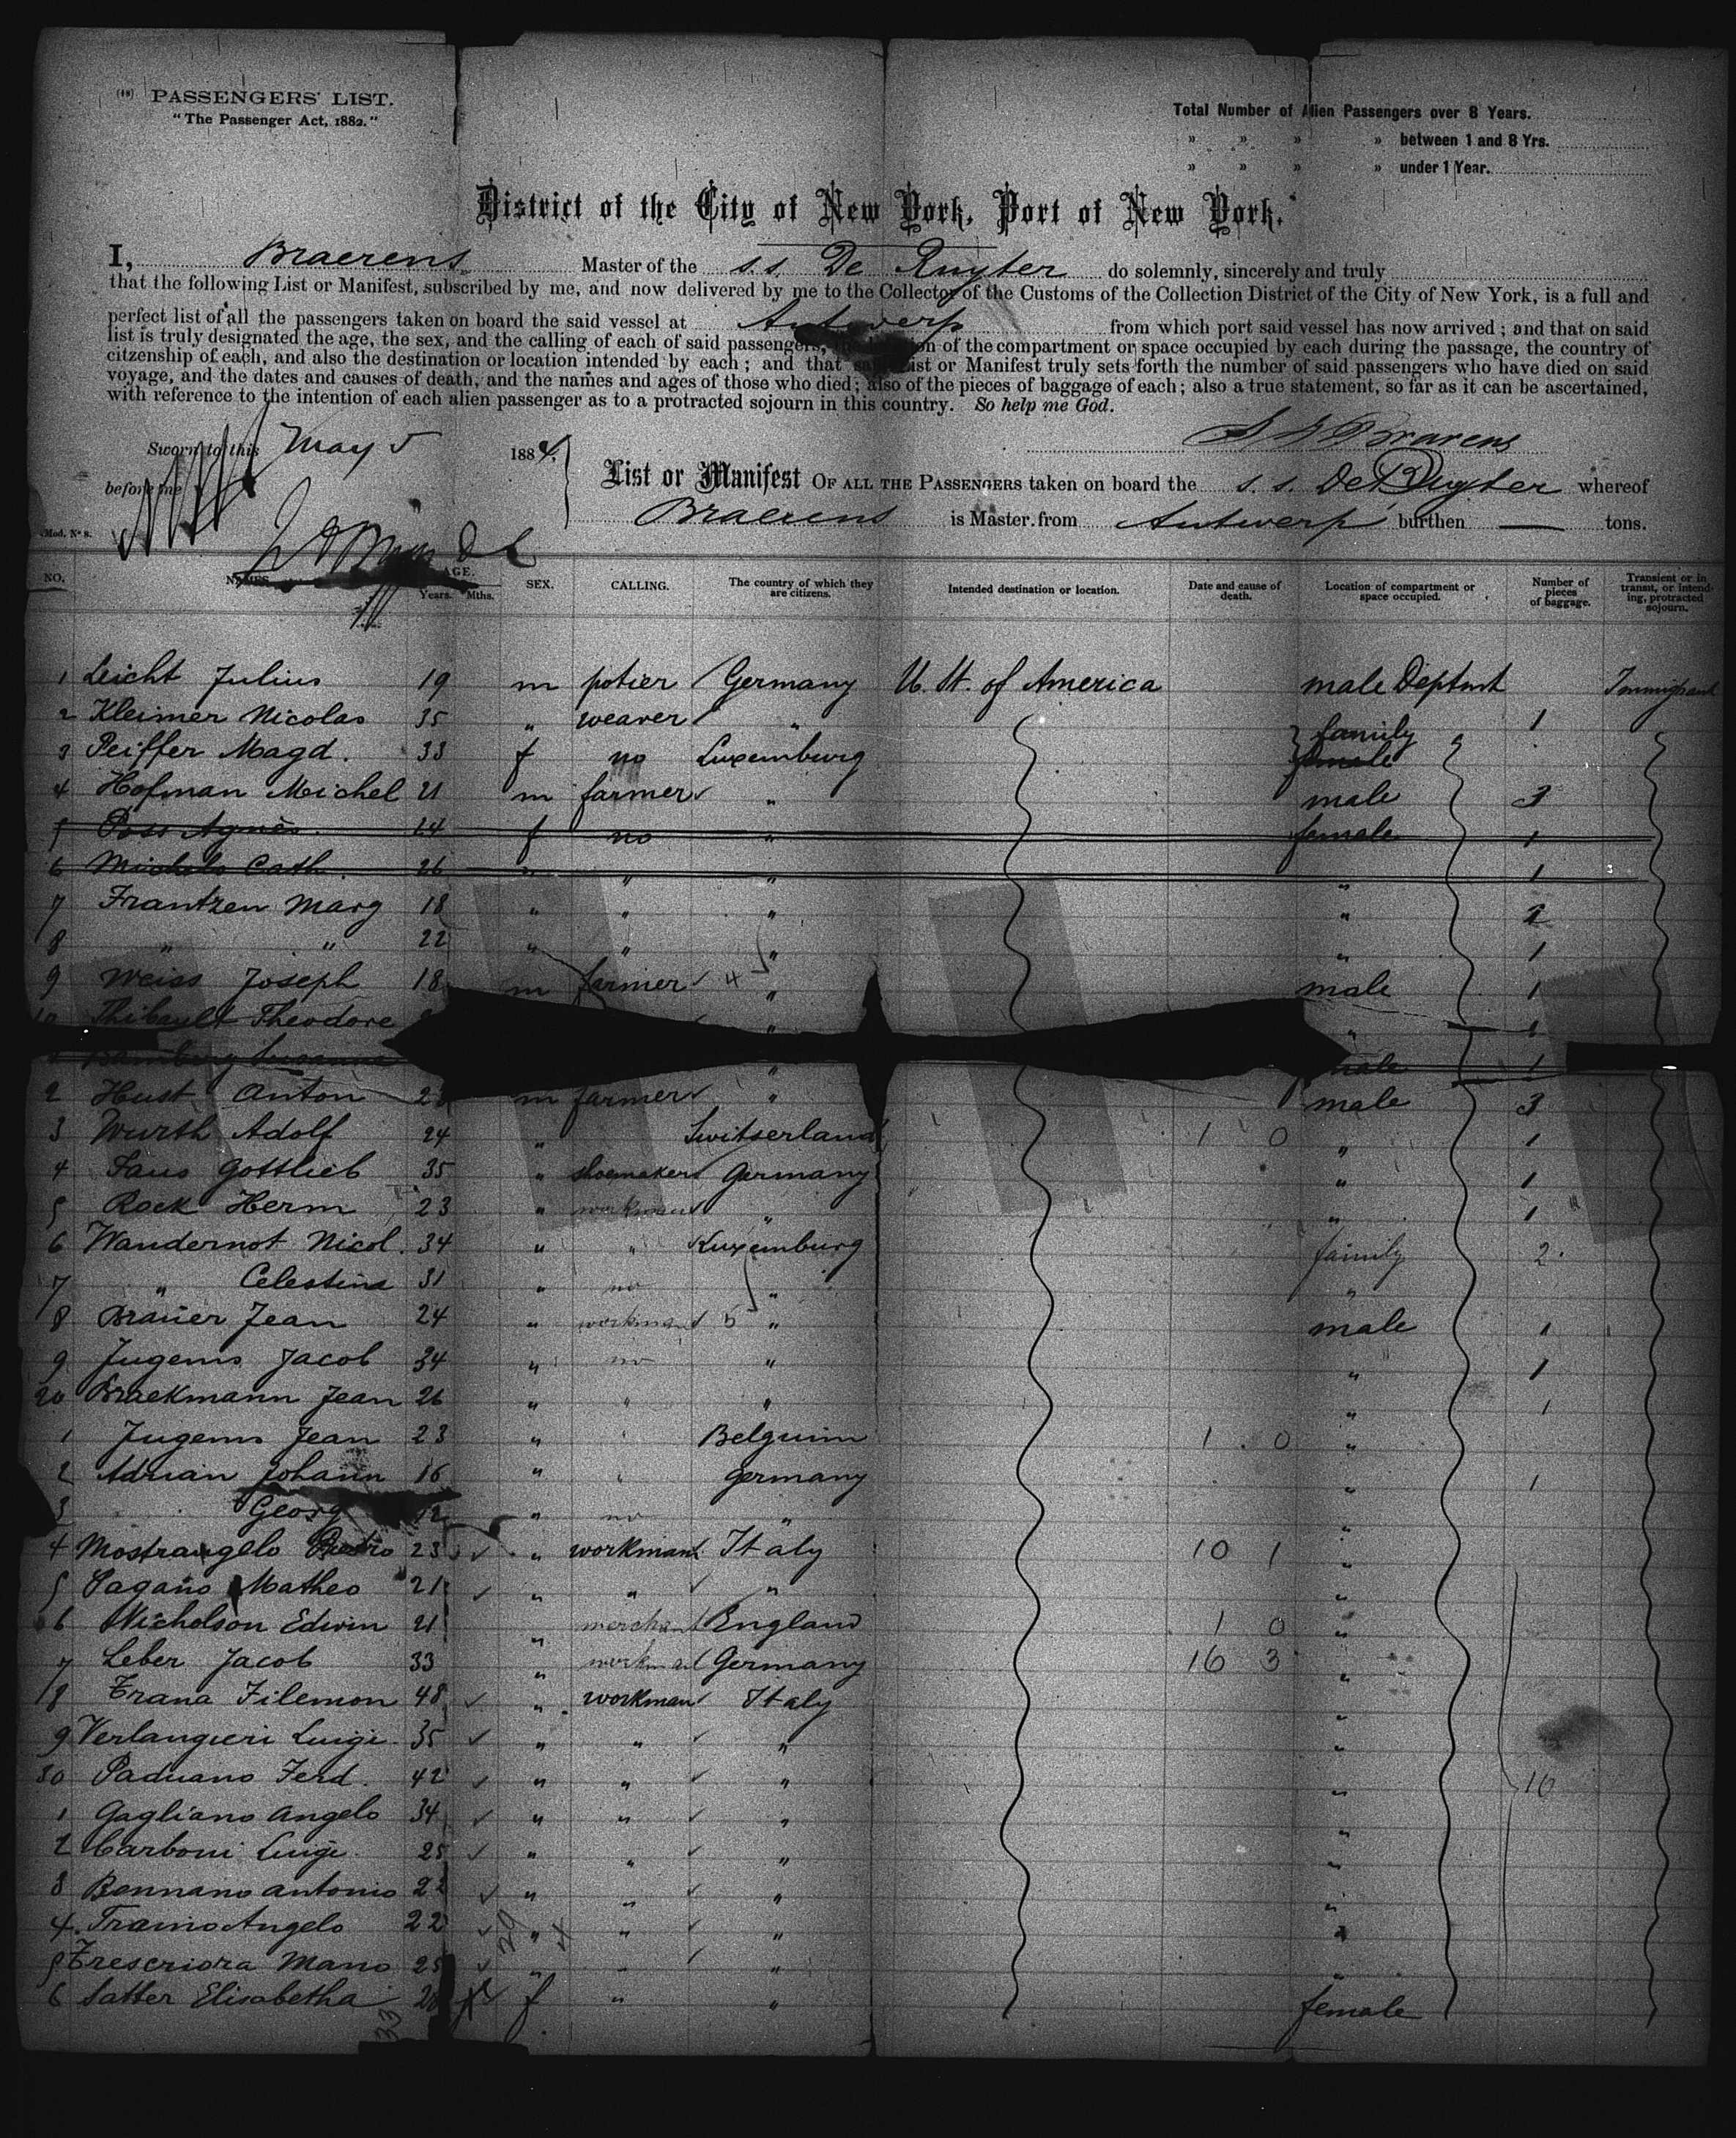 (18) PASSENGERS' LIST.
"The Passenger Act, 1882."
Total Number of Alien Passengers over 8 Years.
" " " " between 1 and 8 Yrs.
" " " " under 1 Year.
District of the City of New York, Port of New York.
I, Braerens Master of the s.s. De Ruyter do solemnly, sincerely and truly
that the following List or Manifest, subscribed by me, and now delivered by me to the Collector of the Customs of the Collection District of the City of New York, is a full and
perfect list of all the passengers taken on board the said vessel at Antwerp from which port said vessel has now arrived; and that on said
list is truly designated the age, the sex, and the calling of each of said passengers, of the compartment or space occupied by each during the passage, the country of
citzenship of each, and also the destination or location intended by each; and that List or Manifest truly sets forth the number of said passengers who have died on said
voyage, and the dates and causes of death, and the names and ages of those who died; also of the pieces of baggage of each; also a true statement, so far as it can be ascertained,
with reference to the intention of each alien passenger as to a protracted sojourn in this country. So help me God.
Brarens
Sworn to this May 5 1884,
before me
List or Manifest OF ALL THE PASSENGERS taken on board the s. s. De Ruyter whereof
Braerens is Master, from Antwerp, burthen — tons.
Mod. No 8.
NO. NAMES. AGE. Years. Mths. SEX. CALLING. The country of which they are citizens. Intended destination or location. Date and cause of death. Location of compartment or space occupied. Number of pieces of baggage. Transient or in transit, or intending, protracted sojourn.
1 Leicht Julius 19 m potier Germany U. St. of America male Deptmt Immigrant
2 Kleimer Nicolas 35 " weaver " family 1
3 Peiffer Magd. 33 f no Luxemburg female
4 Hofman Michel 21 m farmer " male 3
5 Poss Agnès. 24 f no " female 1
6 Michels Cath. 26 " " " 1
7 Frantzen Marg 18 " " " " 2
8 " " 22 " " " " 1
9 Weiss Joseph 18 m farmer 4 " male 1
10 Thibault Theodore " " 1
1 Susanna " male 1
2 Hust Anton m farmer " male 3
3 Wurth Adolf 24 " Switserland 1 0 " 1
4 Faus Gottlieb 35 " shoemaker Germany " 1
5 Rock Herm 23 " workman " " 1
6 Wandernot Nicol. 34 " " Luxemburg family 2.
7 " Celestine 31 " no " "
8 Brauer Jean 24 " workman 5 " male 1
9 Jugems Jacob 34 " no " " 1
20 Braekmann Jean 26 " " " " 1
1 Jugems Jean 23 " Belguim 1 0 "
2 Adrian Johann 16 " germany " 1
3 Georg 12 " no " "
4 Mostrangelo Pietro 23 " workman Italy 10 1 "
5 Pagano Matheo 21 " " " "
6 Nicholson Edwin 21 " merchant England 1 0 "
7 Leber Jacob 33 " workman Germany 16 3 "
8 Trana Filemon 48 " workman Italy "
9 Verlangieri Luigi 35 " " " "
30 Paduano Ferd. 42 " " " " 10
1 Gagliano Angelo 34 " " " "
2 Carboni Luigi 25 " " " "
3 Bennano Antonio 22 " " " "
4 Traino Angelo 22 " " "
5 Trescriora Mano 25 " " " "
6 Satter Elisabetha f " " female
33